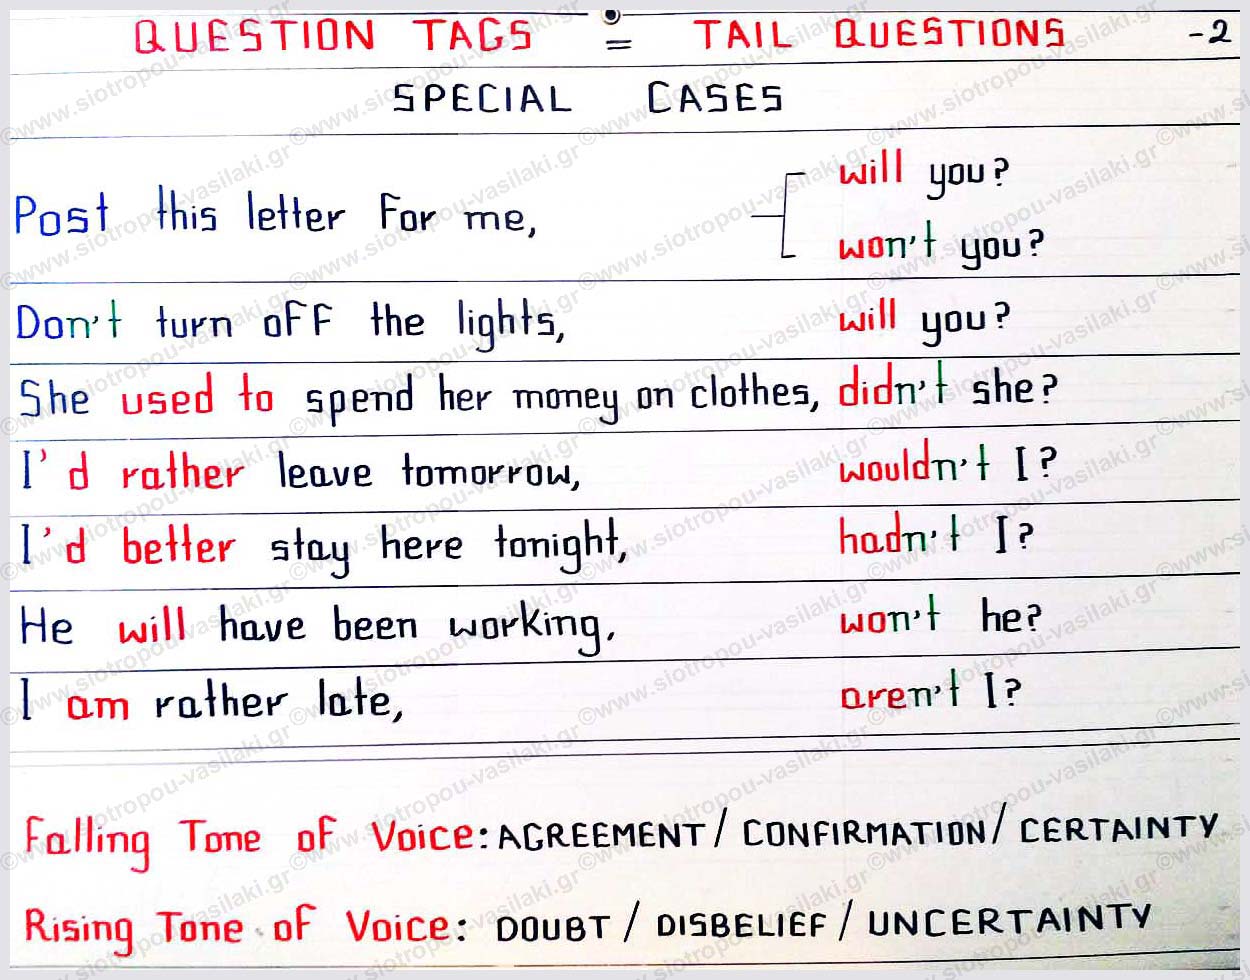 QUESTION TAGS = TAIL QUESTIONS -2
SPECIAL CASES
Post this letter for me, will you?
won't you?
Don't turn off the lights, will you?
She used to spend her money on clothes, didn't she?
I'd rather leave tomorrow, wouldn't I?
I'd better stay here tonight, hadn't I?
He will have been working, won't he?
I am rather late, aren't I?
Falling Tone of Voice: AGREEMENT / CONFIRMATION / CERTAINTY
Rising Tone of Voice: DOUBT / DISBELIEF / UNCERTAINTY
©www.siotropou-vasilaki.gr